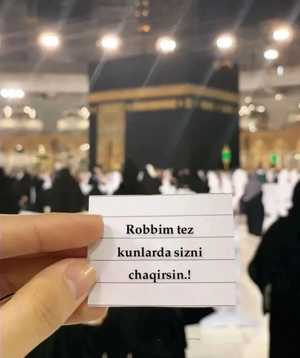 Robbim tez
kunlarda sizni
chaqirsin.!